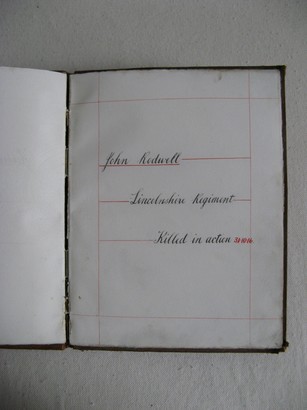 John Redwell
Lincolnshire Regiment
Killed in action